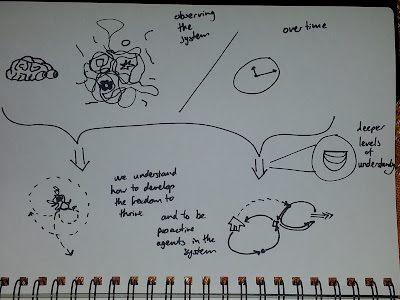 observing
the
system
over time
deeper
levels
of
understanding
we understand
how to develop
the freedom to
think
and to be
proactive
agents in the
system